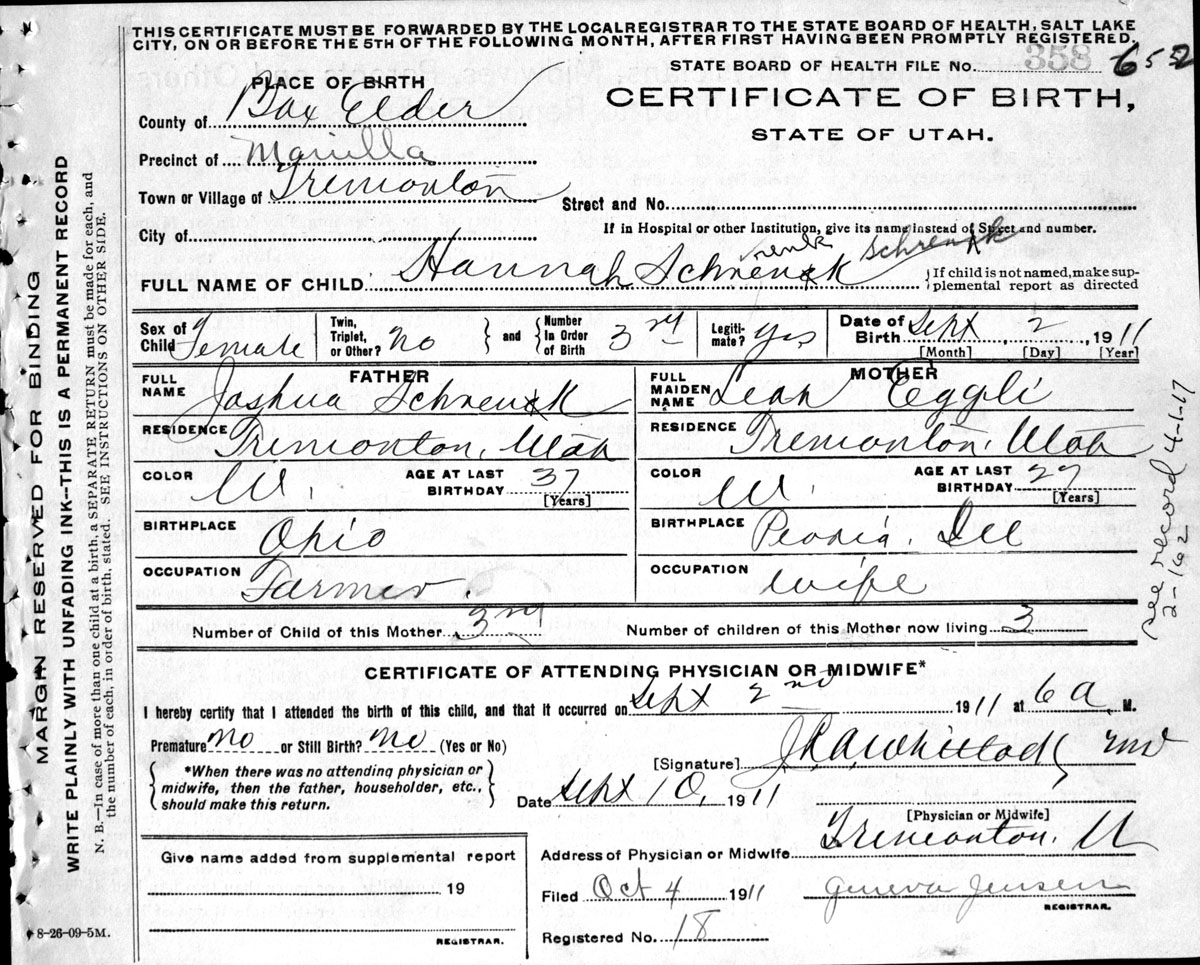 THIS CERTIFICATE MUST BE FORWARDED BY THE LOCAL REGISTRAR TO THE STATE BOARD OF HEALTH, SALT LAKE
CITY, ON OR BEFORE THE 5TH OF THE FOLLOWING MONTH, AFTER FIRST HAVING BEEN PROMPTLY REGISTERED.
STATE BOARD OF HEALTH FILE No. 358 6552
PLACE OF BIRTH
CERTIFICATE OF BIRTH,
STATE OF UTAH.
County of Box Elder
Precinct of
Town or Village of Tremonton
Street and No.
City of
If in Hospital or other Institution, give its name instead of Street and number.
FULL NAME OF CHILD Hannah Schrenk Schrenk
If child is not named, make sup-
plemental report as directed
Sex of Child Female
Twin, Triplet, or Other? No
and Number In Order of Birth 3rd
Legiti-mate? Yes
Date of Birth Sept 2, 1911
[Month] [Day] [Year]
FATHER
FULL NAME Joshua Schrenk
RESIDENCE Tremonton, Utah
COLOR W. AGE AT LAST BIRTHDAY 37
[Years]
BIRTHPLACE Ohio
OCCUPATION Farmer.
MOTHER
FULL MAIDEN NAME Leah Eggli
RESIDENCE Tremonton, Utah
COLOR W. AGE AT LAST BIRTHDAY 27
[Years]
BIRTHPLACE Peoria, Ill
OCCUPATION wife
Number of Child of this Mother 3rd Number of children of this Mother now living 3
CERTIFICATE OF ATTENDING PHYSICIAN OR MIDWIFE*
I hereby certify that I attended the birth of this child, and that it occurred on Sept 2nd 1911 at 6 a. M.
Premature no or Still Birth? no (Yes or No)
*When there was no attending physician or
midwife, then the father, householder, etc.,
should make this return.
[Signature]
Date Sept 10, 1911
[Physician or Midwife]
Address of Physician or Midwife Tremonton, U
Give name added from supplemental report
19
REGISTRAR.
Filed Oct 4 1911 Geneva Jensen
REGISTRAR.
Registered No. 18
8-26-09-5M.
MARGIN RESERVED FOR BINDING
WRITE PLAINLY WITH UNFADING INK--THIS IS A PERMANENT RECORD
N. B.—In case of more than one child at a birth, a SEPARATE RETURN must be made for each, and
the number of each, in order of birth, stated. SEE INSTRUCTION ON OTHER SIDE.
see record 4-1-17
2-162